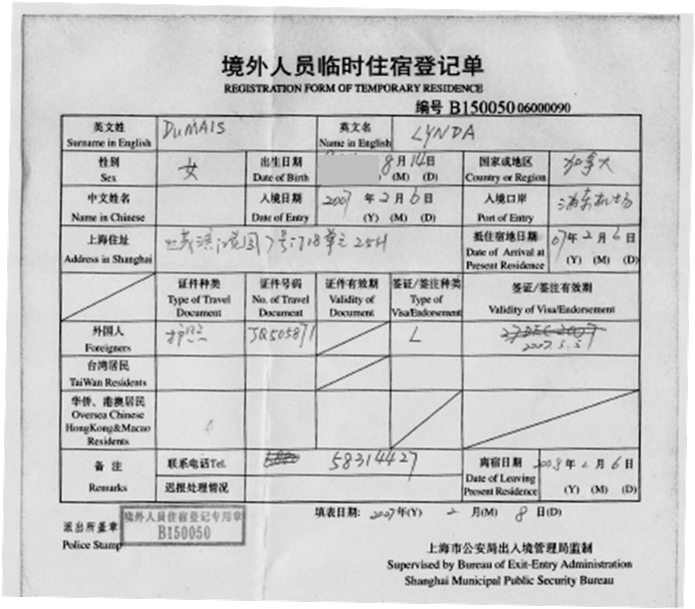 境外人员临时住宿登记单
REGISTRATION FORM OF TEMPORARY RESIDENCE
编号 B150050 06000090
英文姓 DUMAIS 英文名 LYNDA
Surname in English Name in English
性别 女 出生日期 8月14日 国家或地区 加拿大
Sex Date of Birth (M) (D) Country or Region
中文姓名 入境日期 2007年2月6日 入境口岸 浦东机场
Name in Chinese Date of Entry (Y) (M) (D) Port of Entry
上海住址 世茂滨江花园7号门18单元25H 抵住宿地日期 07年2月6日
Address in Shanghai Date of Arrival at Present Residence (Y) (M) (D)
证件种类 证件号码 证件有效期 签证/签注种类 签证/签注有效期
Type of Travel Document No. of Travel Document Validity of Document Type of Visa/Endorsement Validity of Visa/Endorsement
外国人 护照 JQ505871 L
Foreigners 2007.5.5
台湾居民
TaiWan Residents
华侨、港澳居民
Oversea Chinese
HongKong&Macao
Residents
备 注 联系电话Tel. 58314427 离宿日期 年2月6日
Remarks 迟报处理情况 Date of Leaving Present Residence (Y) (M) (D)
填表日期: 2007年(Y) 2月(M) 8日(D)
派出所盖章 境外人员住宿登记专用章
Police Stamp B150050
上海市公安局出入境管理局监制
Supervised by Bureau of Exit-Entry Administration
Shanghai Municipal Public Security Bureau